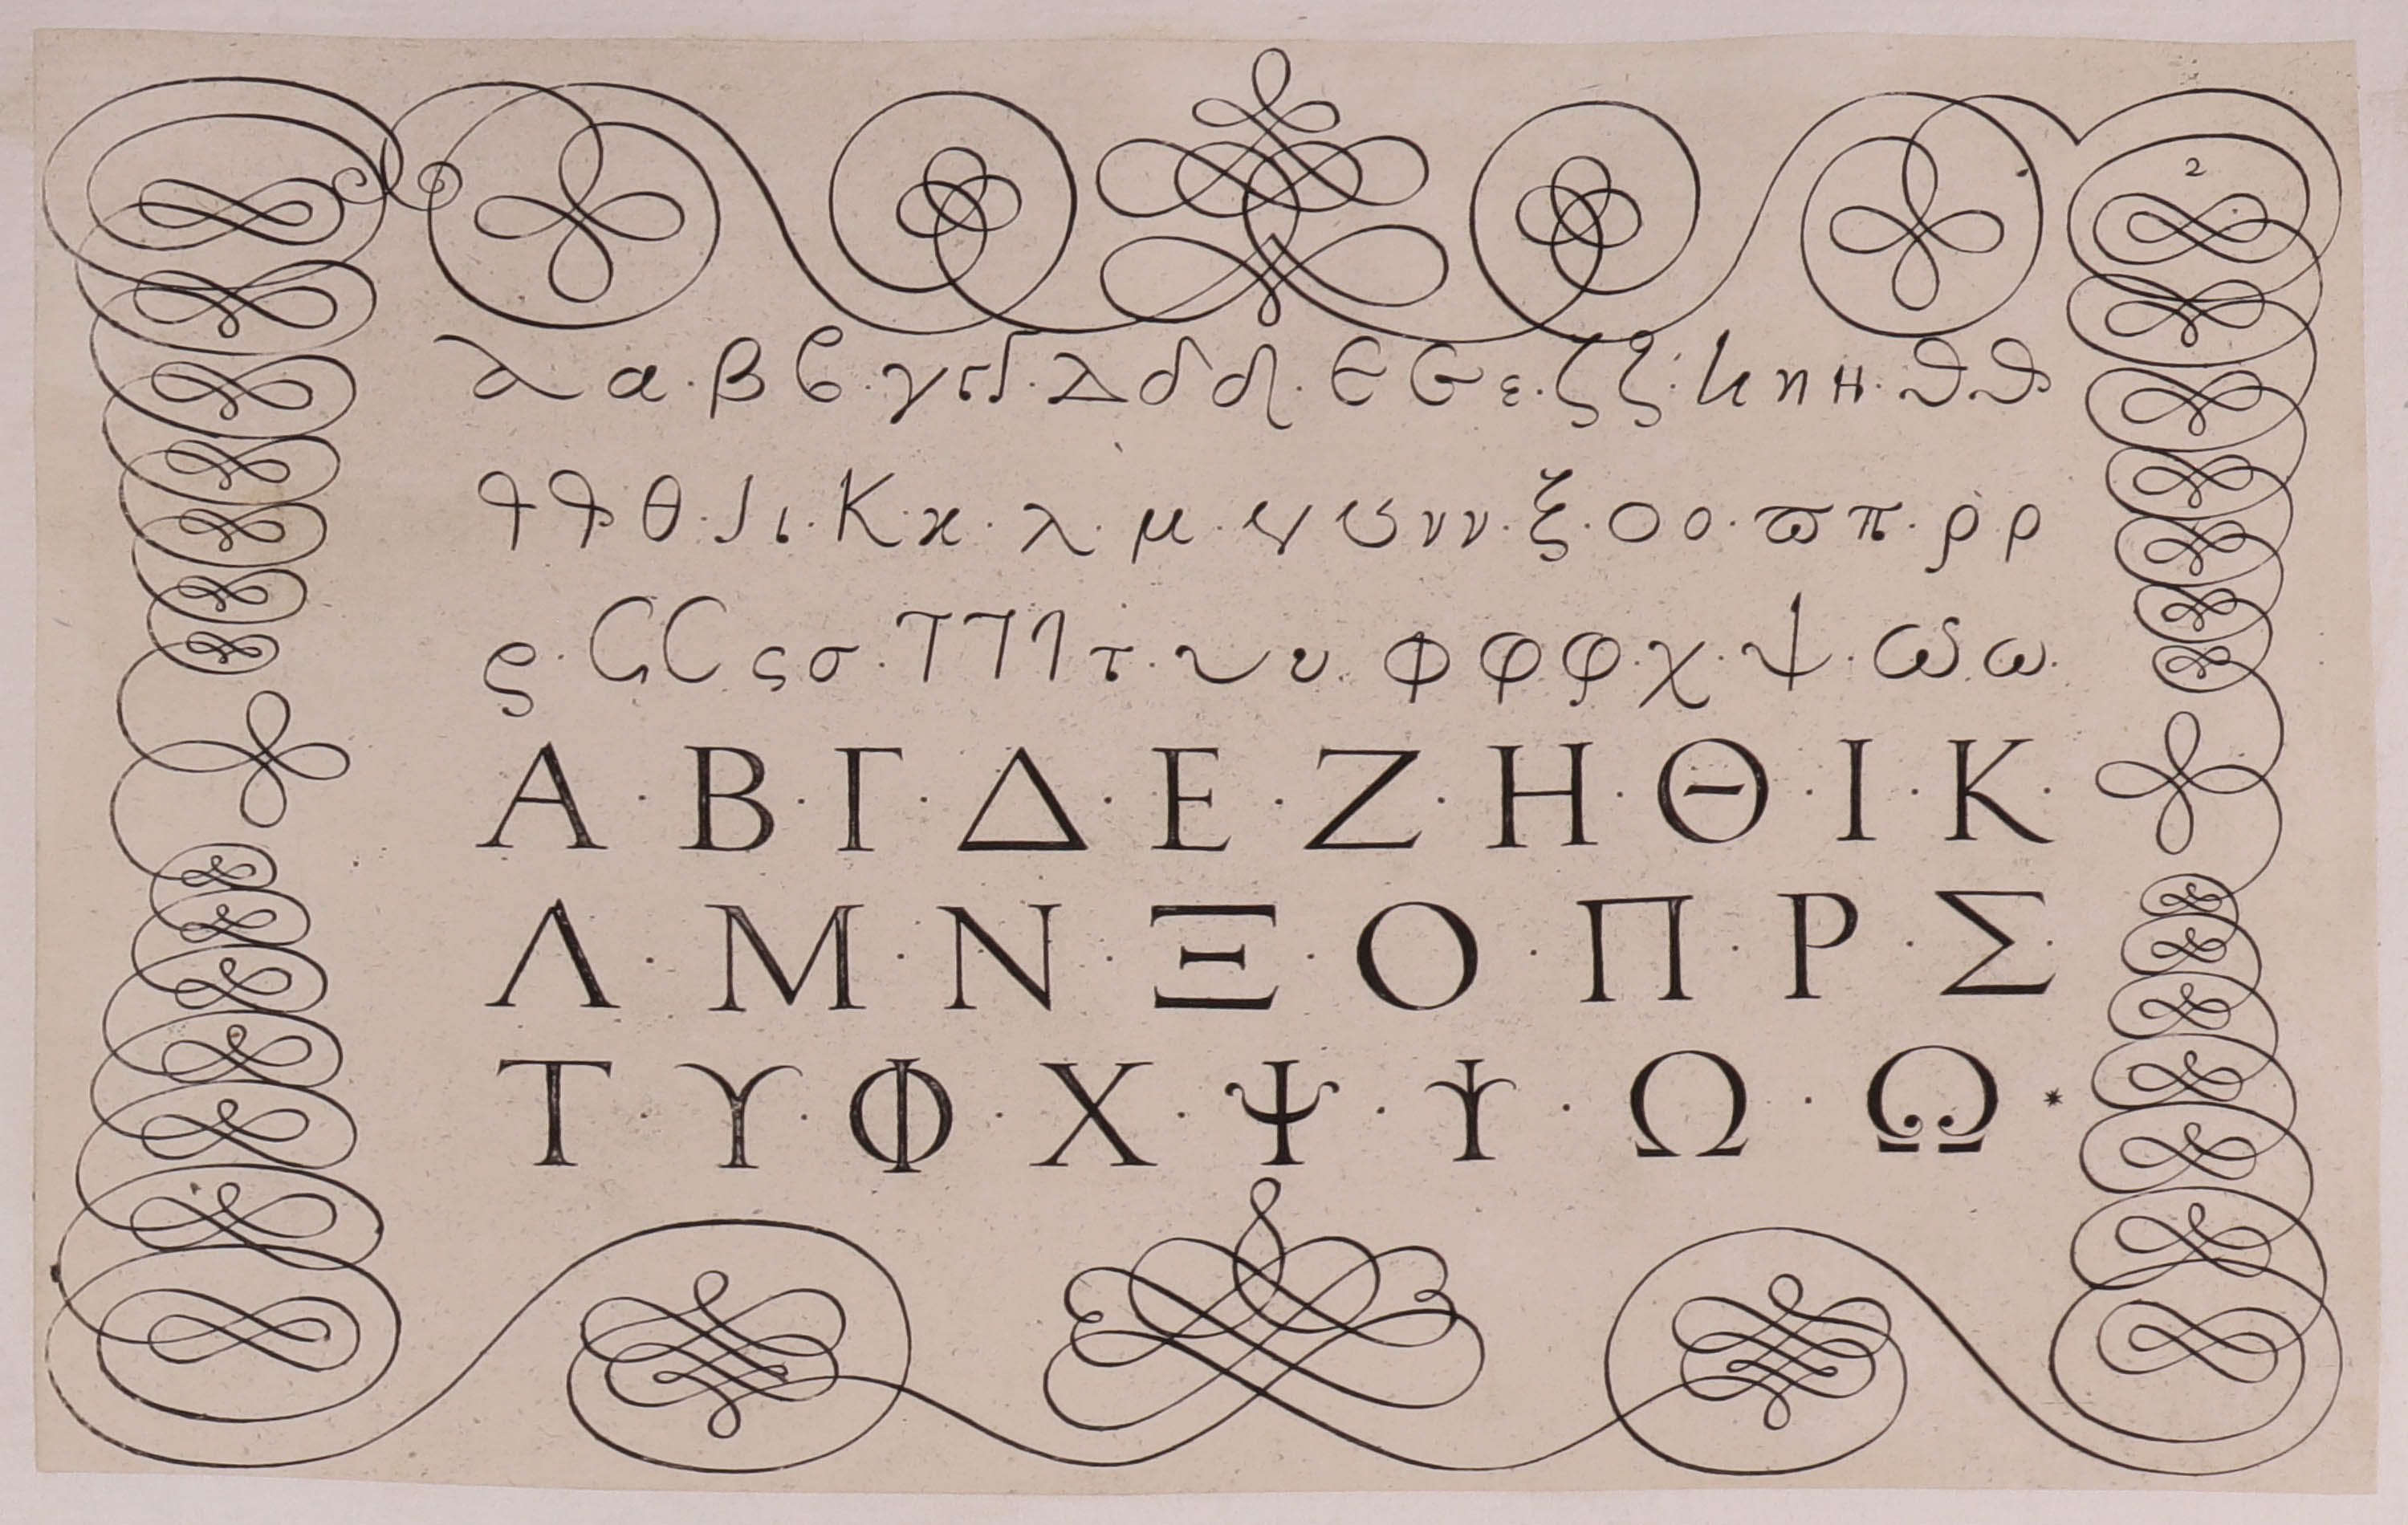 2
α α · β β · γ Γ Γ · Δ δ δ · ε ε ε · ζ ζ · η η η · ϑ ϑ
ϑ ϑ θ · ι ι · Κ κ · λ · μ · ν ν ν ν · ξ · ο ο · ϖ π · ρ ρ
ς · C C ς σ · Τ Τ Τ τ · υ υ · φ φ φ · χ · ψ · ω ω ·
Α · Β · Γ · Δ · Ε · Ζ · Η · Θ · Ι · Κ ·
Λ · Μ · Ν · Ξ · Ο · Π · Ρ · Σ ·
Τ · Υ · Φ · Χ · Ψ · Ψ · Ω · Ω *